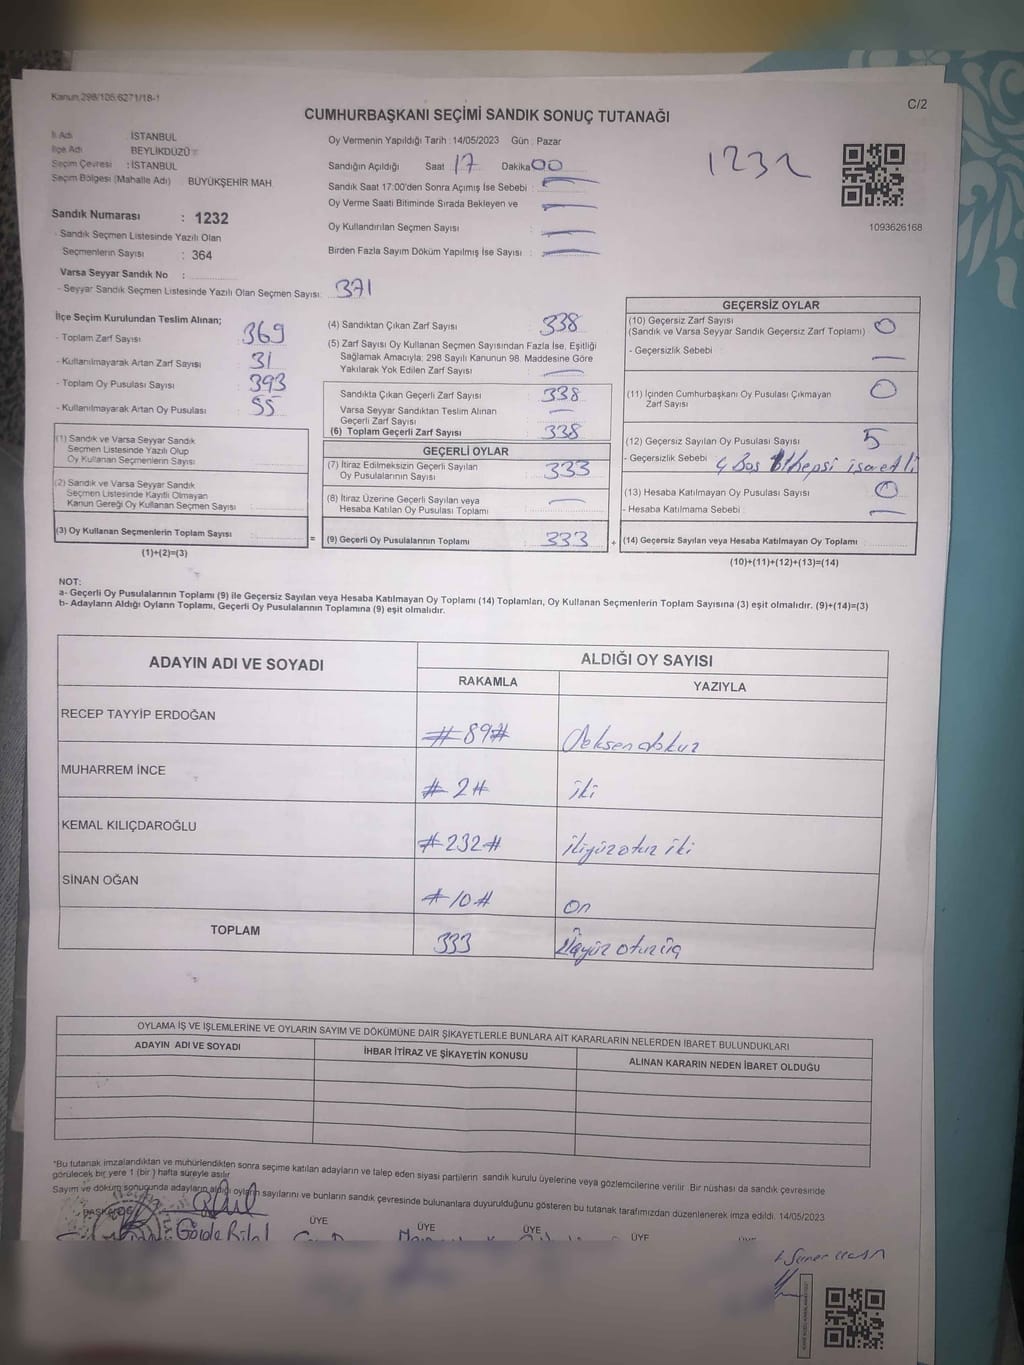 Kanun 298/105,6271/18-1
C/2
CUMHURBAŞKANI SEÇİMİ SANDIK SONUÇ TUTANAĞI
İl Adı İSTANBUL
İlçe Adı BEYLİKDÜZÜ
Seçim Çevresi : İSTANBUL
Seçim Bölgesi (Mahalle Adı) BÜYÜKŞEHİR MAH.
Sandık Numarası : 1232
- Sandık Seçmen Listesinde Yazılı Olan
Seçmenlerin Sayısı : 364
Varsa Seyyar Sandık No :
- Seyyar Sandık Seçmen Listesinde Yazılı Olan Seçmen Sayısı: 371
Oy Vermenin Yapıldığı Tarih : 14/05/2023 Gün : Pazar
Sandığın Açıldığı Saat 17 Dakika 00
Sandık Saat 17:00'den Sonra Açılmış İse Sebebi :
Oy Verme Saati Bitiminde Sırada Bekleyen ve
Oy Kullandırılan Seçmen Sayısı :
Birden Fazla Sayım Döküm Yapılmış İse Sayısı :
1232
1093626168
İlçe Seçim Kurulundan Teslim Alınan;
- Toplam Zarf Sayısı : 369
- Kullanılmayarak Artan Zarf Sayısı : 31
- Toplam Oy Pusulası Sayısı : 393
- Kullanılmayarak Artan Oy Pusulası : 55
(1) Sandık ve Varsa Seyyar Sandık
Seçmen Listesinde Yazılı Olup
Oy Kullanan Seçmenlerin Sayısı
(2) Sandık ve Varsa Seyyar Sandık
Seçmen Listesinde Kayıtlı Olmayan
Kanun Gereği Oy Kullanan Seçmen Sayısı
(3) Oy Kullanan Seçmenlerin Toplam Sayısı
(1)+(2)=(3)
=
(4) Sandıktan Çıkan Zarf Sayısı : 338
(5) Zarf Sayısı Oy Kullanan Seçmen Sayısından Fazla İse, Eşitliği
Sağlamak Amacıyla; 298 Sayılı Kanunun 98. Maddesine Göre
Yakılarak Yok Edilen Zarf Sayısı :
Sandıkta Çıkan Geçerli Zarf Sayısı : 338
Varsa Seyyar Sandıktan Teslim Alınan
Geçerli Zarf Sayısı :
(6) Toplam Geçerli Zarf Sayısı : 338
GEÇERLİ OYLAR
(7) İtiraz Edilmeksizin Geçerli Sayılan
Oy Pusulalarının Sayısı : 333
(8) İtiraz Üzerine Geçerli Sayılan veya
Hesaba Katılan Oy Pusulası Toplamı :
(9) Geçerli Oy Pusulalarının Toplamı : 333
+
GEÇERSİZ OYLAR
(10) Geçersiz Zarf Sayısı
(Sandık ve Varsa Seyyar Sandık Geçersiz Zarf Toplamı) : 0
- Geçersizlik Sebebi :
(11) İçinden Cumhurbaşkanı Oy Pusulası Çıkmayan
Zarf Sayısı : 0
(12) Geçersiz Sayılan Oy Pusulası Sayısı : 5
- Geçersizlik Sebebi : 4 Boş hepsi işaretli
(13) Hesaba Katılmayan Oy Pusulası Sayısı : 0
- Hesaba Katılmama Sebebi :
(14) Geçersiz Sayılan veya Hesaba Katılmayan Oy Toplamı :
(10)+(11)+(12)+(13)=(14)
NOT:
a- Geçerli Oy Pusulalarının Toplamı (9) ile Geçersiz Sayılan veya Hesaba Katılmayan Oy Toplamı (14) Toplamları, Oy Kullanan Seçmenlerin Toplam Sayısına (3) eşit olmalıdır. (9)+(14)=(3)
b- Adayların Aldığı Oyların Toplamı, Geçerli Oy Pusulalarının Toplamına (9) eşit olmalıdır.
ADAYIN ADI VE SOYADI ALDIĞI OY SAYISI
RAKAMLA YAZIYLA
RECEP TAYYİP ERDOĞAN #89# Seksendokuz
MUHARREM İNCE #2# iki
KEMAL KILIÇDAROĞLU #232# ikiyüzotuz iki
SİNAN OĞAN #10# On
TOPLAM 333 Üçyüz otuz üç
OYLAMA İŞ VE İŞLEMLERİNE VE OYLARIN SAYIM VE DÖKÜMÜNE DAİR ŞİKAYETLERLE BUNLARA AİT KARARLARIN NELERDEN İBARET BULUNDUKLARI
ADAYIN ADI VE SOYADI İHBAR İTİRAZ VE ŞİKAYETİN KONUSU ALINAN KARARIN NEDEN İBARET OLDUĞU
*Bu tutanak imzalandıktan ve mühürlendikten sonra seçime katılan adayların ve talep eden siyasi partilerin sandık kurulu üyelerine veya gözlemcilerine verilir. Bir nüshası da sandık çevresinde
görülecek bir yere 1 (bir ) hafta süreyle asılır.
Sayım ve döküm sonucunda adayların aldığı oyların sayılarını ve bunların sandık çevresinde bulunanlara duyurulduğunu gösteren bu tutanak tarafımızdan düzenlenerek imza edildi. 14/05/2023
BAŞKAN ÜYE ÜYE ÜYE ÜYE